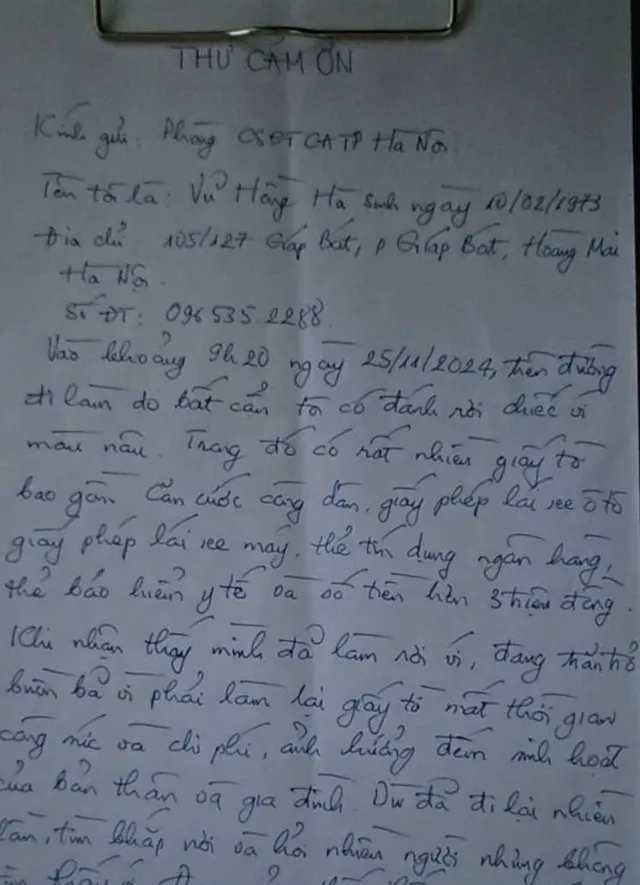 THƯ CẢM ƠN
Kính gửi: Phòng CSĐT CATP Hà Nội.
Tên tôi là: Vũ Hồng Hà sinh ngày 10/02/1973
Địa chỉ 105/127 Giáp Bát, p Giáp Bát, Hoàng Mai
Hà Nội.
Số ĐT: 096 535 2288.
Vào khoảng 9h20 ngày 25/11/2024, trên đường
đi làm do bất cẩn tôi có đánh rơi chiếc ví
màu nâu. Trong đó có rất nhiều giấy tờ
bao gồm Căn cước công dân, giấy phép lái xe ô tô
giấy phép lái xe máy, thẻ tín dụng ngân hàng,
thẻ bảo hiểm y tế và số tiền hơn 3 triệu đồng.
Khi nhận thấy mình đã làm rơi ví, đang trăn trở
buồn bã vì phải làm lại giấy tờ mất thời gian
công sức và chi phí, ảnh hưởng đến sinh hoạt
của bản thân và gia đình. Dù đã đi lại nhiều
lần, tìm khắp nơi và hỏi nhiều người nhưng không